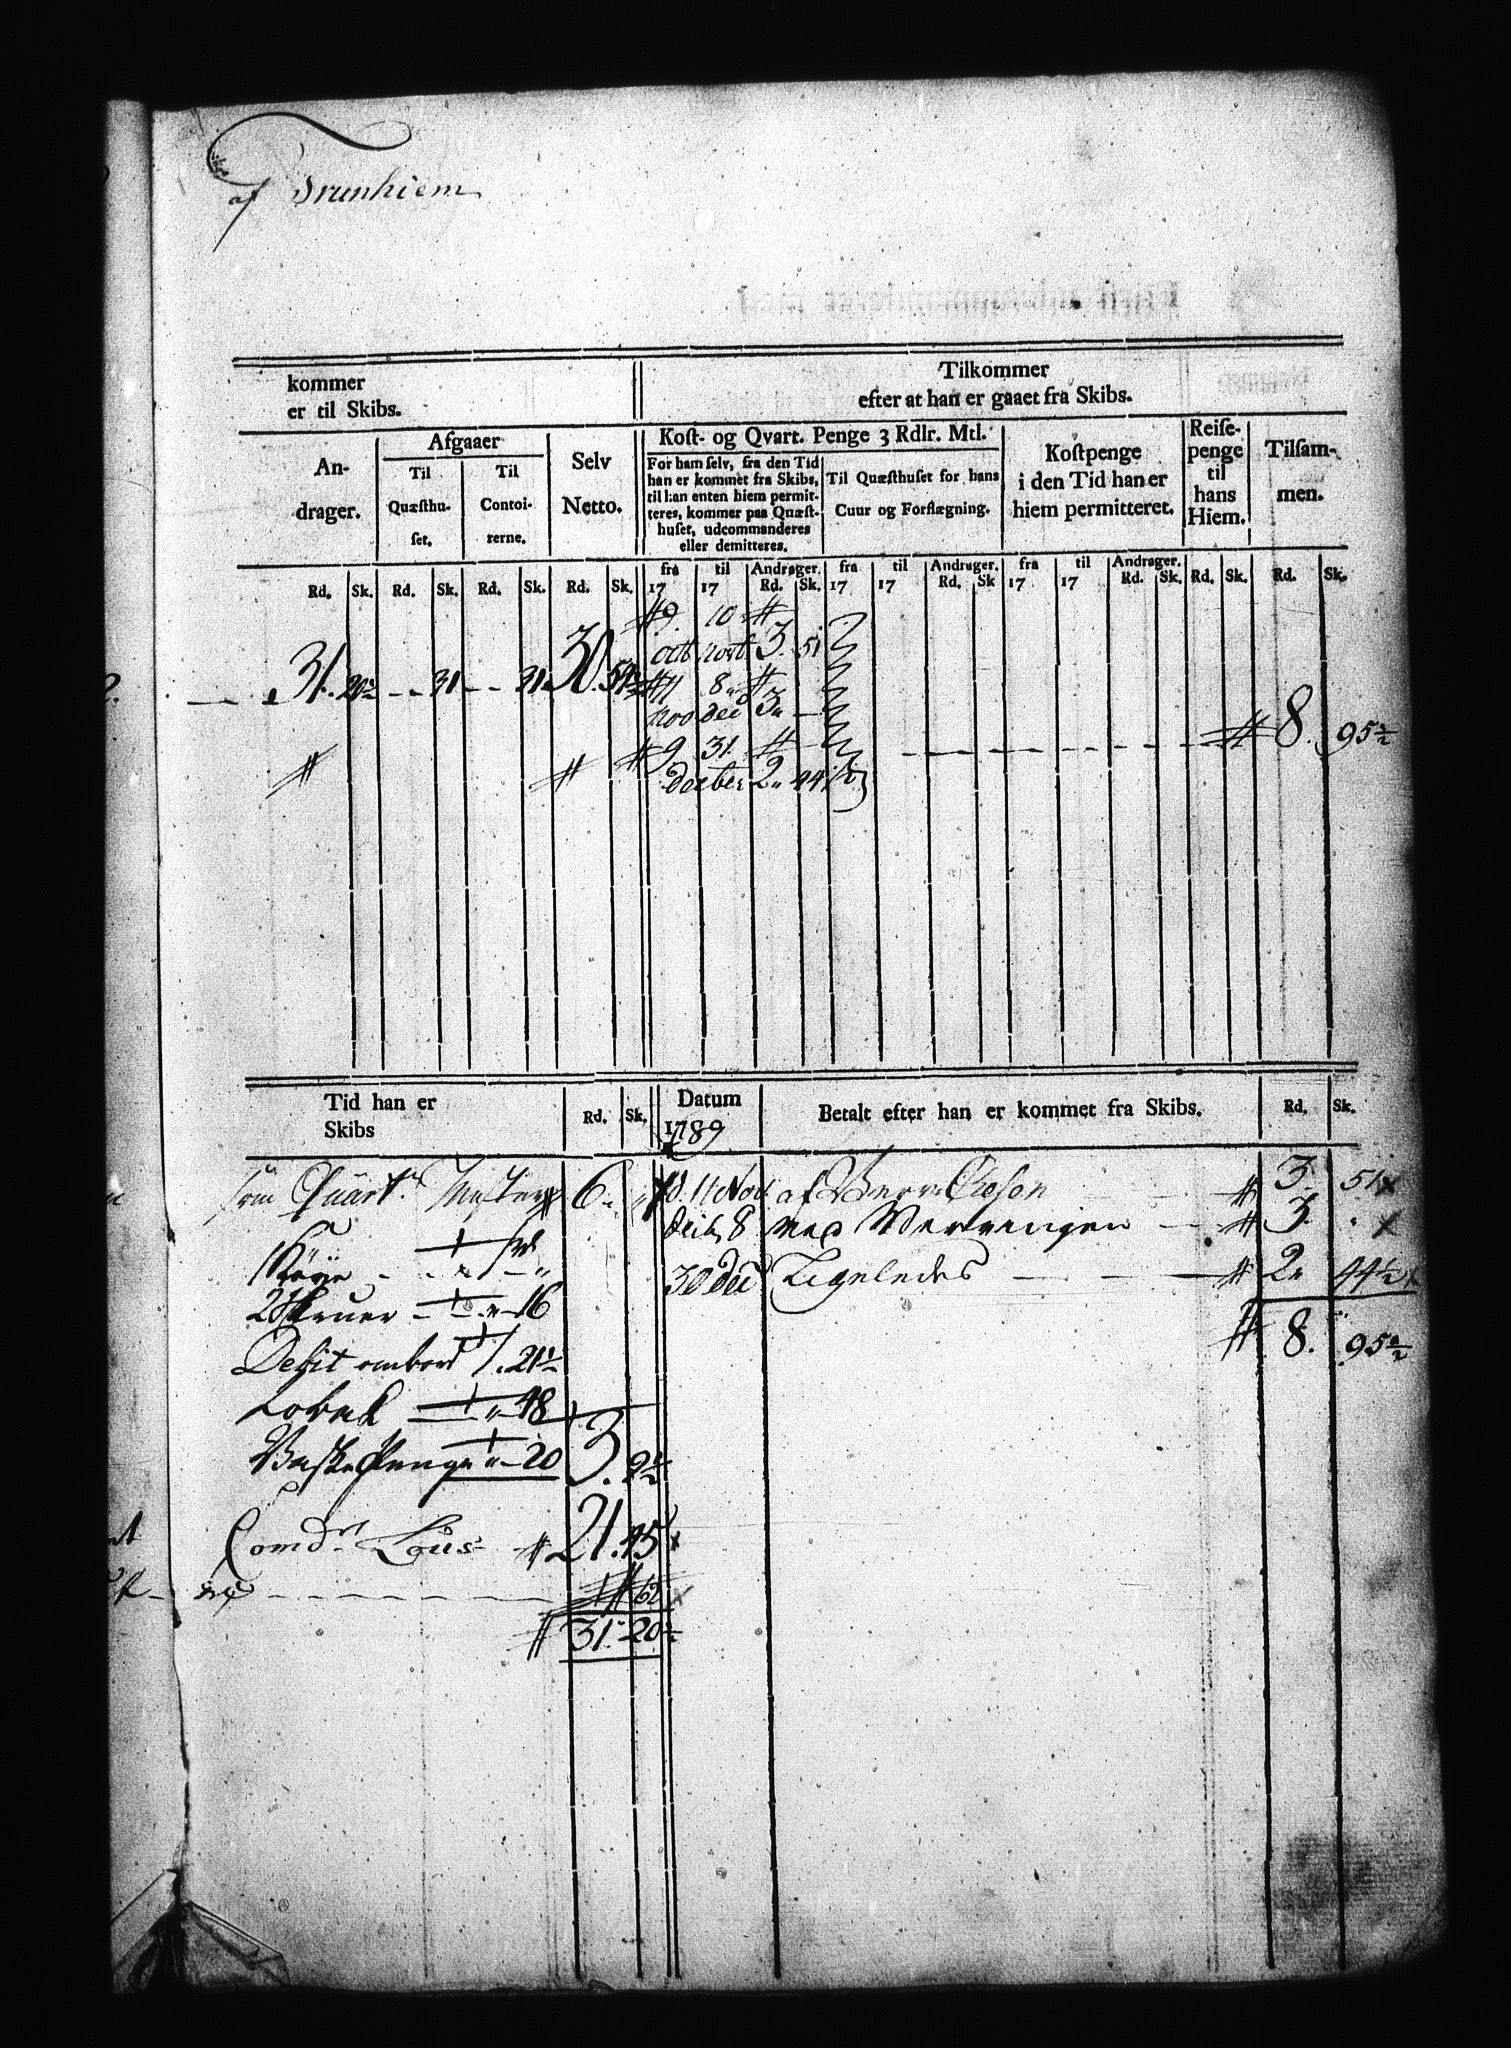 af Trunhiem
kommer
er til Skibs.
Tilkommer
efter at han er gaaet fra Skibs.
An-
drager.
Afgaaer
Til
Quæsthu-
set.
Til
Contoi-
rerne.
Selv
Netto.
Kost- og Qvart. Penge 3 Rdlr. Mtl.
For ham selv, fra den Tid
han er kommet fra Skibs,
til han enten hiem permit-
teres, kommer paa Quæst-
huset, udcommanderes
eller demitteres.
Til Quæsthuset for hans
Cuur og Forflægning.
Kostpenge
i den Tid han er
hiem permitteret.
Reise-
penge
til
hans
Hiem.
Tilsam-
men.
fra til Andrager. fra til Andrager. fra til Andrager.
Rd. Sk. Rd. Sk. Rd. Sk. Rd. Sk. 17 17 Rd. Sk. 17 17 Rd. Sk 17 17 Rd. Sk. Rd. Sk. Rd. Sk.
9. 10
octb novb 3. 51
31. 20½ 31 31 30. 54½
11 8
nov dec 3
8. 95½
9 31.
decber 2 44½
Tid han er
Skibs
Rd. Sk.
Datum
1789
Betalt efter han er kommet fra Skibs.
Rd. Sk.
som Quart. Mester 6
d. 11 Nov. af 3. 51
1 Køye
decb 8 ved 3.
2 16
30 dec Ligeledes 2 44½
8. 95½
Debit ombord 1. 21½
Tobak 48
Vaske Penge 20 3. 9½
Comdr. Lous 21. 45
62
31. 20½